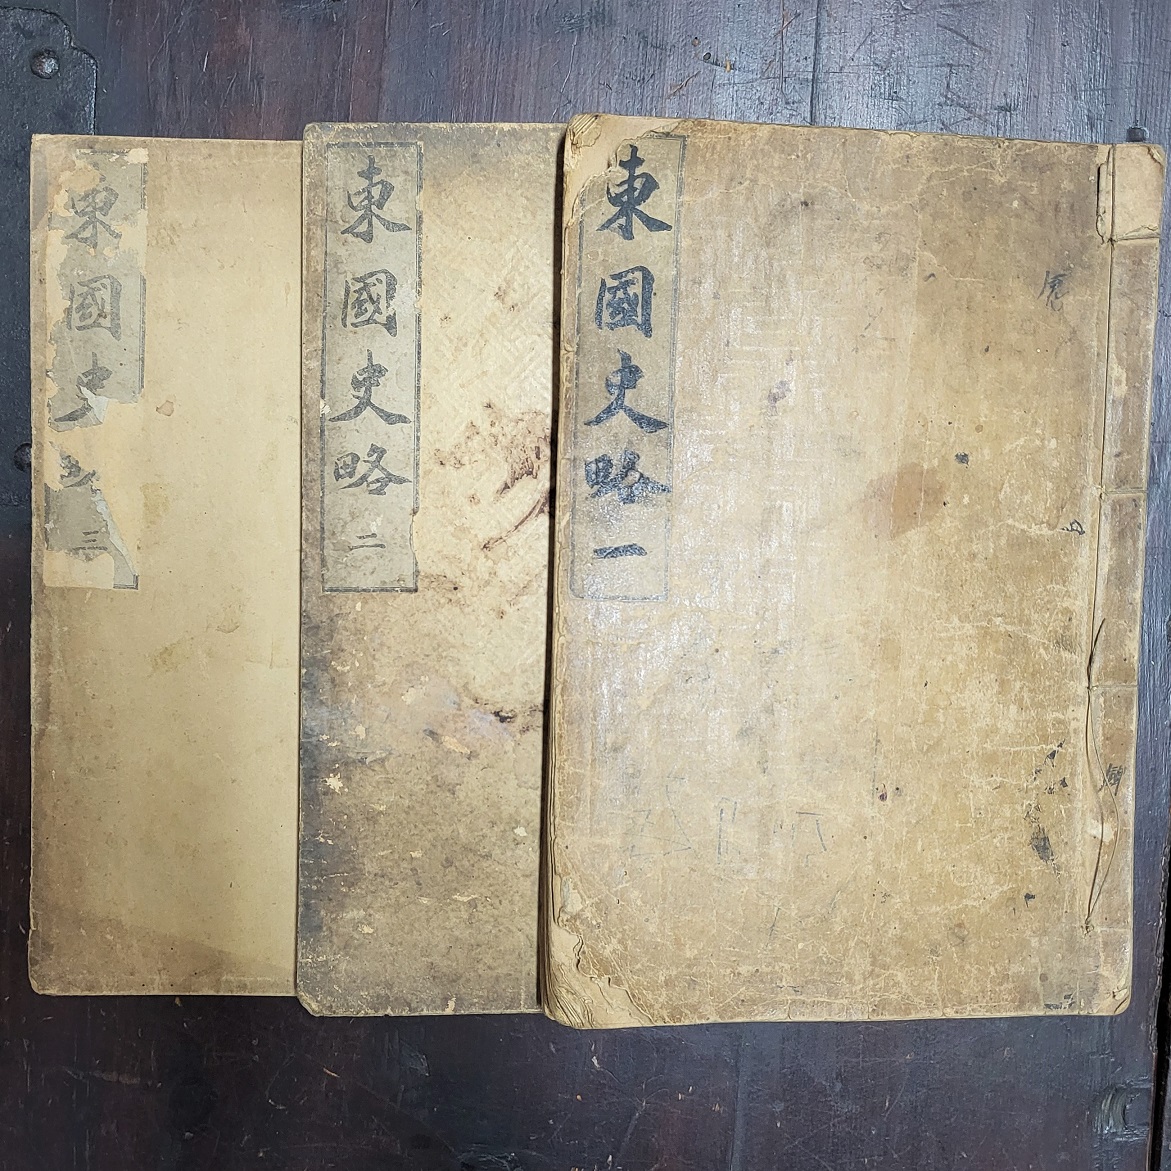 東國史略一
東國史略二
東國史略三